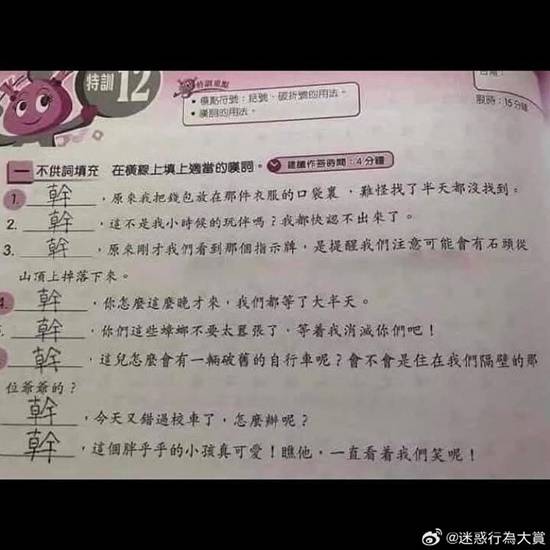 特訓12
特訓重點
• 標點符號：括號、破折號的用法。
• 嘆詞的用法。
限時：15分鐘
一 不供詞填充 在橫線上填上適當的嘆詞。 建議作答時間：4分鐘
1. 幹，原來我把錢包放在那件衣服的口袋裏，難怪找了半天都沒找到。
2. 幹，這不是我小時候的玩伴嗎？我都快認不出來了。
3. 幹，原來剛才我們看到那個指示牌，是提醒我們注意可能會有石頭從
山頂上掉落下來。
4. 幹，你怎麼這麼晚才來，我們都等了大半天。
幹，你們這些蟑螂不要太囂張了，等着我消滅你們吧！
幹，這兒怎麼會有一輛破舊的自行車呢？會不會是住在我們隔壁的那
位爺爺的？
幹，今天又錯過校車了，怎麼辦呢？
幹，這個胖乎乎的小孩真可愛！瞧他，一直看着我們笑呢！
@迷惑行為大賞